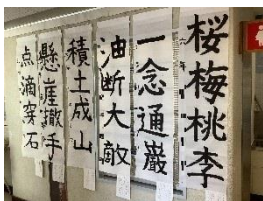 桜梅桃李
一念通巌
油断大敵
積土成山
懸崖撤手
点滴穿石